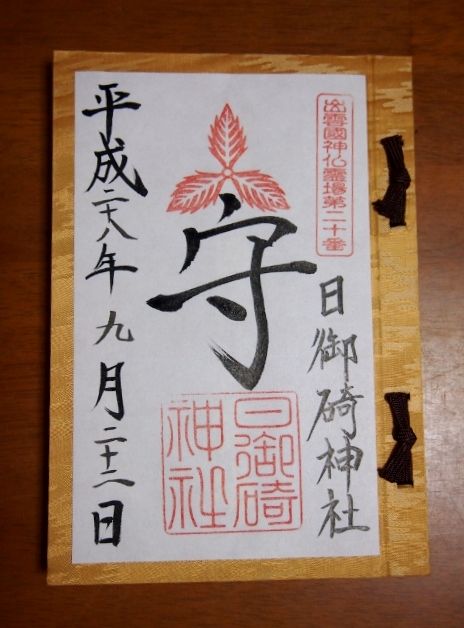 出雲國神仏霊場第二十番
日御碕神社
守
日御碕
神社
平成二十八年九月二十二日